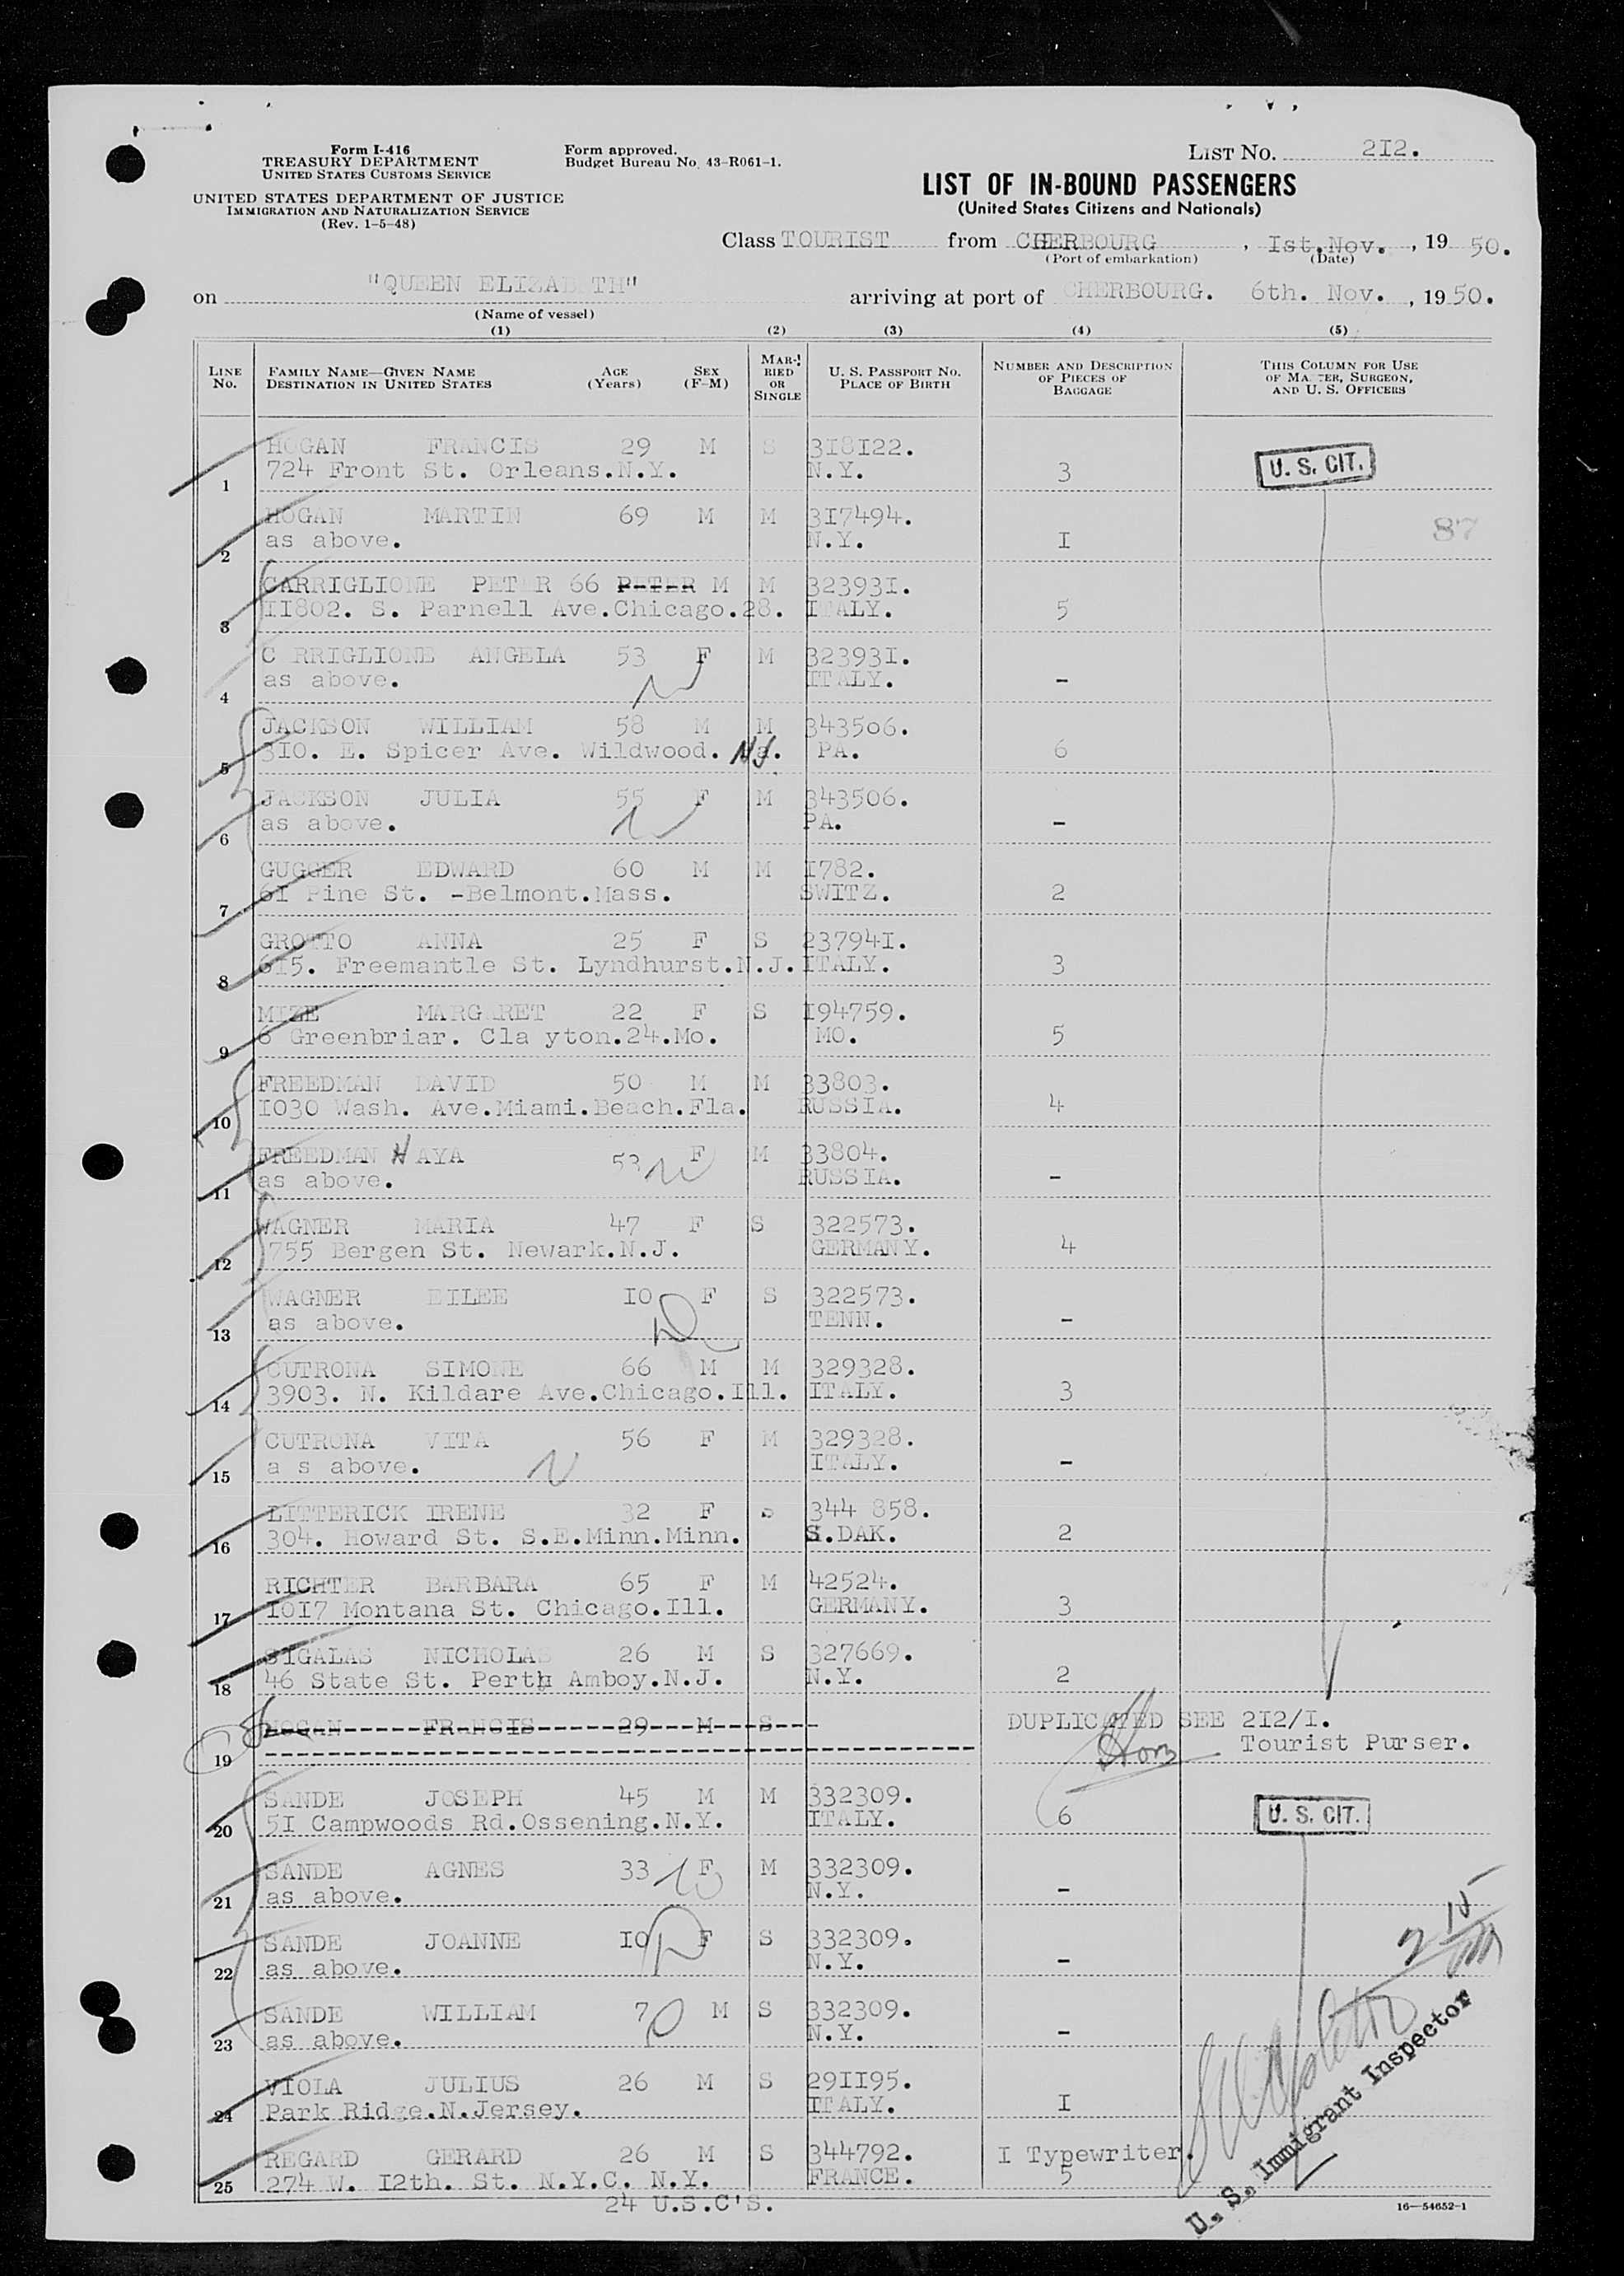 Form I-416
TREASURY DEPARTMENT
UNITED STATES CUSTOMS SERVICE
UNITED STATES DEPARTMENT OF JUSTICE
IMMIGRATION AND NATURALIZATION SERVICE
(Rev. 1-5-48)
Form approved.
Budget Bureau No. 43-R061-1.
LIST No. 2I2.
LIST OF IN-BOUND PASSENGERS
(United States Citizens and Nationals)
Class TOURIST from CHERBOURG, Ist.Nov., 19 50.
(Port of embarkation) (Date)
on "QUEEN ELIZABETH" arriving at port of CHERBOURG. 6th. Nov., 1950.
(Name of vessel)
(1) (2) (3) (4) (5)
LINE No. FAMILY NAME—GIVEN NAME DESTINATION IN UNITED STATES AGE (Years) SEX (F-M) MARRIED OR SINGLE U. S. PASSPORT NO. PLACE OF BIRTH NUMBER AND DESCRIPTION OF PIECES OF BAGGAGE THIS COLUMN FOR USE OF MASTER, SURGEON, AND U. S. OFFICERS
HOGAN FRANCIS 29 M S 3I8I22.
1 724 Front St. Orleans.N.Y. N.Y. 3 U. S. CIT.
HOGAN MARTIN 69 M M 3I7494. 87
2 as above. N.Y. I
CARRIGLIONE PET R 66 PETER M M 32393I.
3 II802. S. Parnell Ave.Chicago.28. ITALY. 5
C RRIGLIONE ANGELA 53 F M 32393I.
4 as above. ITALY. -
JACKSON WILLIAM 58 M M 343506.
5 3IO. E. Spicer Ave. Wildwood. NJ. PA. 6
JACKSON JULIA 55 F M 343506.
6 as above. PA. -
GUGGER EDWARD 60 M M I782.
7 6I Pine St. -Belmont.Mass. SWITZ. 2
GROTTO ANNA 25 F S 23794I.
8 6I5. Freemantle St. Lyndhurst.N.J. ITALY. 3
MIZE MARGARET 22 F S I94759.
9 6 Greenbriar. Cla yton.24.Mo. MO. 5
FREEDMAN DAVID 50 M M 33803.
10 I030 Wash. Ave.Miami.Beach.Fla. RUSSIA. 4
FREEDMAN HAYA 53 F M 33804.
11 as above. RUSSIA. -
WAGNER MARIA 47 F S 322573.
12 755 Bergen St. Newark.N.J. GERMANY. 4
WAGNER EILEE IO F S 322573.
13 as above. TENN. -
CUTRONA SIMONE 66 M M 329328.
14 3903. N. Kildare Ave.Chicago.Ill. ITALY. 3
CUTRONA VITA 56 F M 329328.
15 a s above. ITALY. -
LITTERICK IRENE 32 F S 344 858.
16 304. Howard St. S.E.Minn.Minn. S.DAK. 2
RICHTER BARBARA 65 F M 42524.
17 IOI7 Montana St. Chicago.Ill. GERMANY. 3
SIGALAS NICHOLAS 26 M S 327669.
18 46 State St. Perth Amboy.N.J. N.Y. 2
HOGAN FRANCIS 29 M S DUPLICATED SEE 2I2/I.
19 Tourist Purser.
SANDE JOSEPH 45 M M 332309.
20 5I Campwoods Rd.Ossening.N.Y. ITALY. 6 U. S. CIT.
SANDE AGNES 33 F M 332309.
21 as above. N.Y. -
SANDE JOANNE IO F S 332309.
22 as above. N.Y. -
SANDE WILLIAM 7 M S 332309.
23 as above. N.Y. -
VIOLA JULIUS 26 M S 29II95.
24 Park Ridge.N.Jersey. ITALY. I
REGARD GERARD 26 M S 344792. I Typewriter.
25 274 W. I2th. St. N.Y.C. N.Y. FRANCE. 5
24 U.S.C'S.
U. S. Immigrant Inspector
16—54652-1